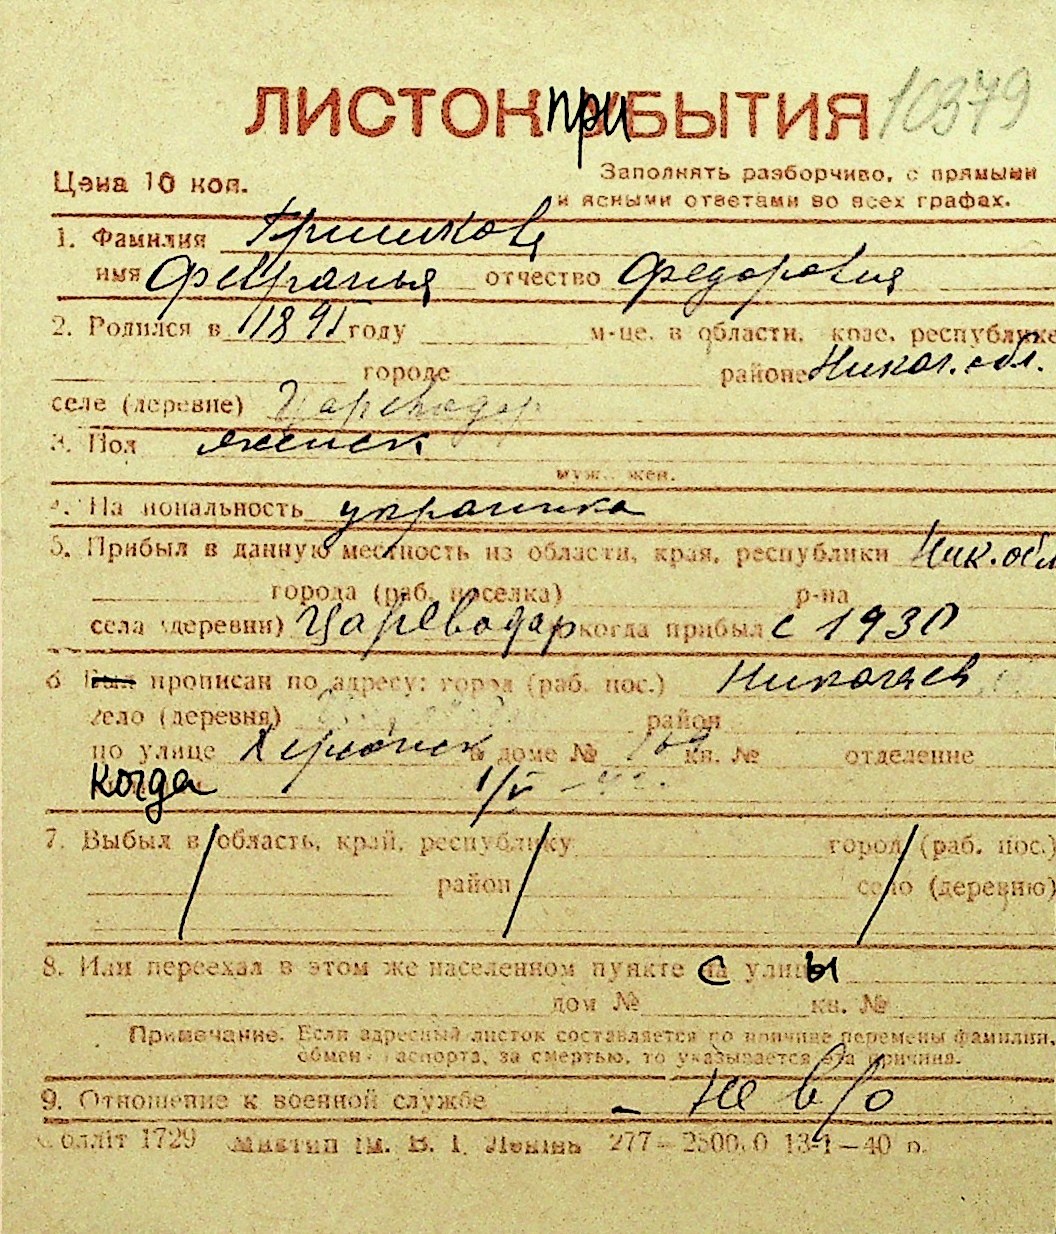 ЛИСТОК ПРИБЫТИЯ 10379
Цена 10 коп.
Заполнять разборчиво, с прямыми
и ясными ответами во всех графах.
1. Фамилия Гришкова
имя отчество Федоровна
2. Родился в 1891 году м-це, в области, крае, республике
городе районе Никол. обл.
селе (деревне) Цареводар
3. Пол женск
муж., жен.
4. Национальность украинка
5. Прибыл в данную местность из области, края, республики Ник. обл
города (раб. поселка) р-на
села (деревни) Цареводар когда прибыл с 1930
6 прописан по адресу: город (раб. пос.) Николаев
село (деревня) район
по улице Херсонск в доме № кв. № отделение
Когда 1/V
7. Выбыл в область, край, республику город (раб. пос.)
район село (деревню)
8. Или переехал в этом же населенном пункте с улицы
дом № кв. №
Примечание. Если адресный листок составляется по причине перемены фамилии,
обмена паспорта, за смертью, то указывается эта причина.
9. Отношение к военной службе – не в/о
1729 ім. В. І. Леніна 277–2500.0 13-1–40 р.